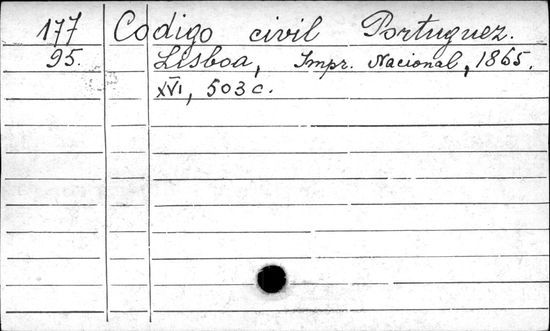 177 Codigo civil Portuguez.
95. Lisboa, Impr. Nacional, 1865.
XVI, 503 c.